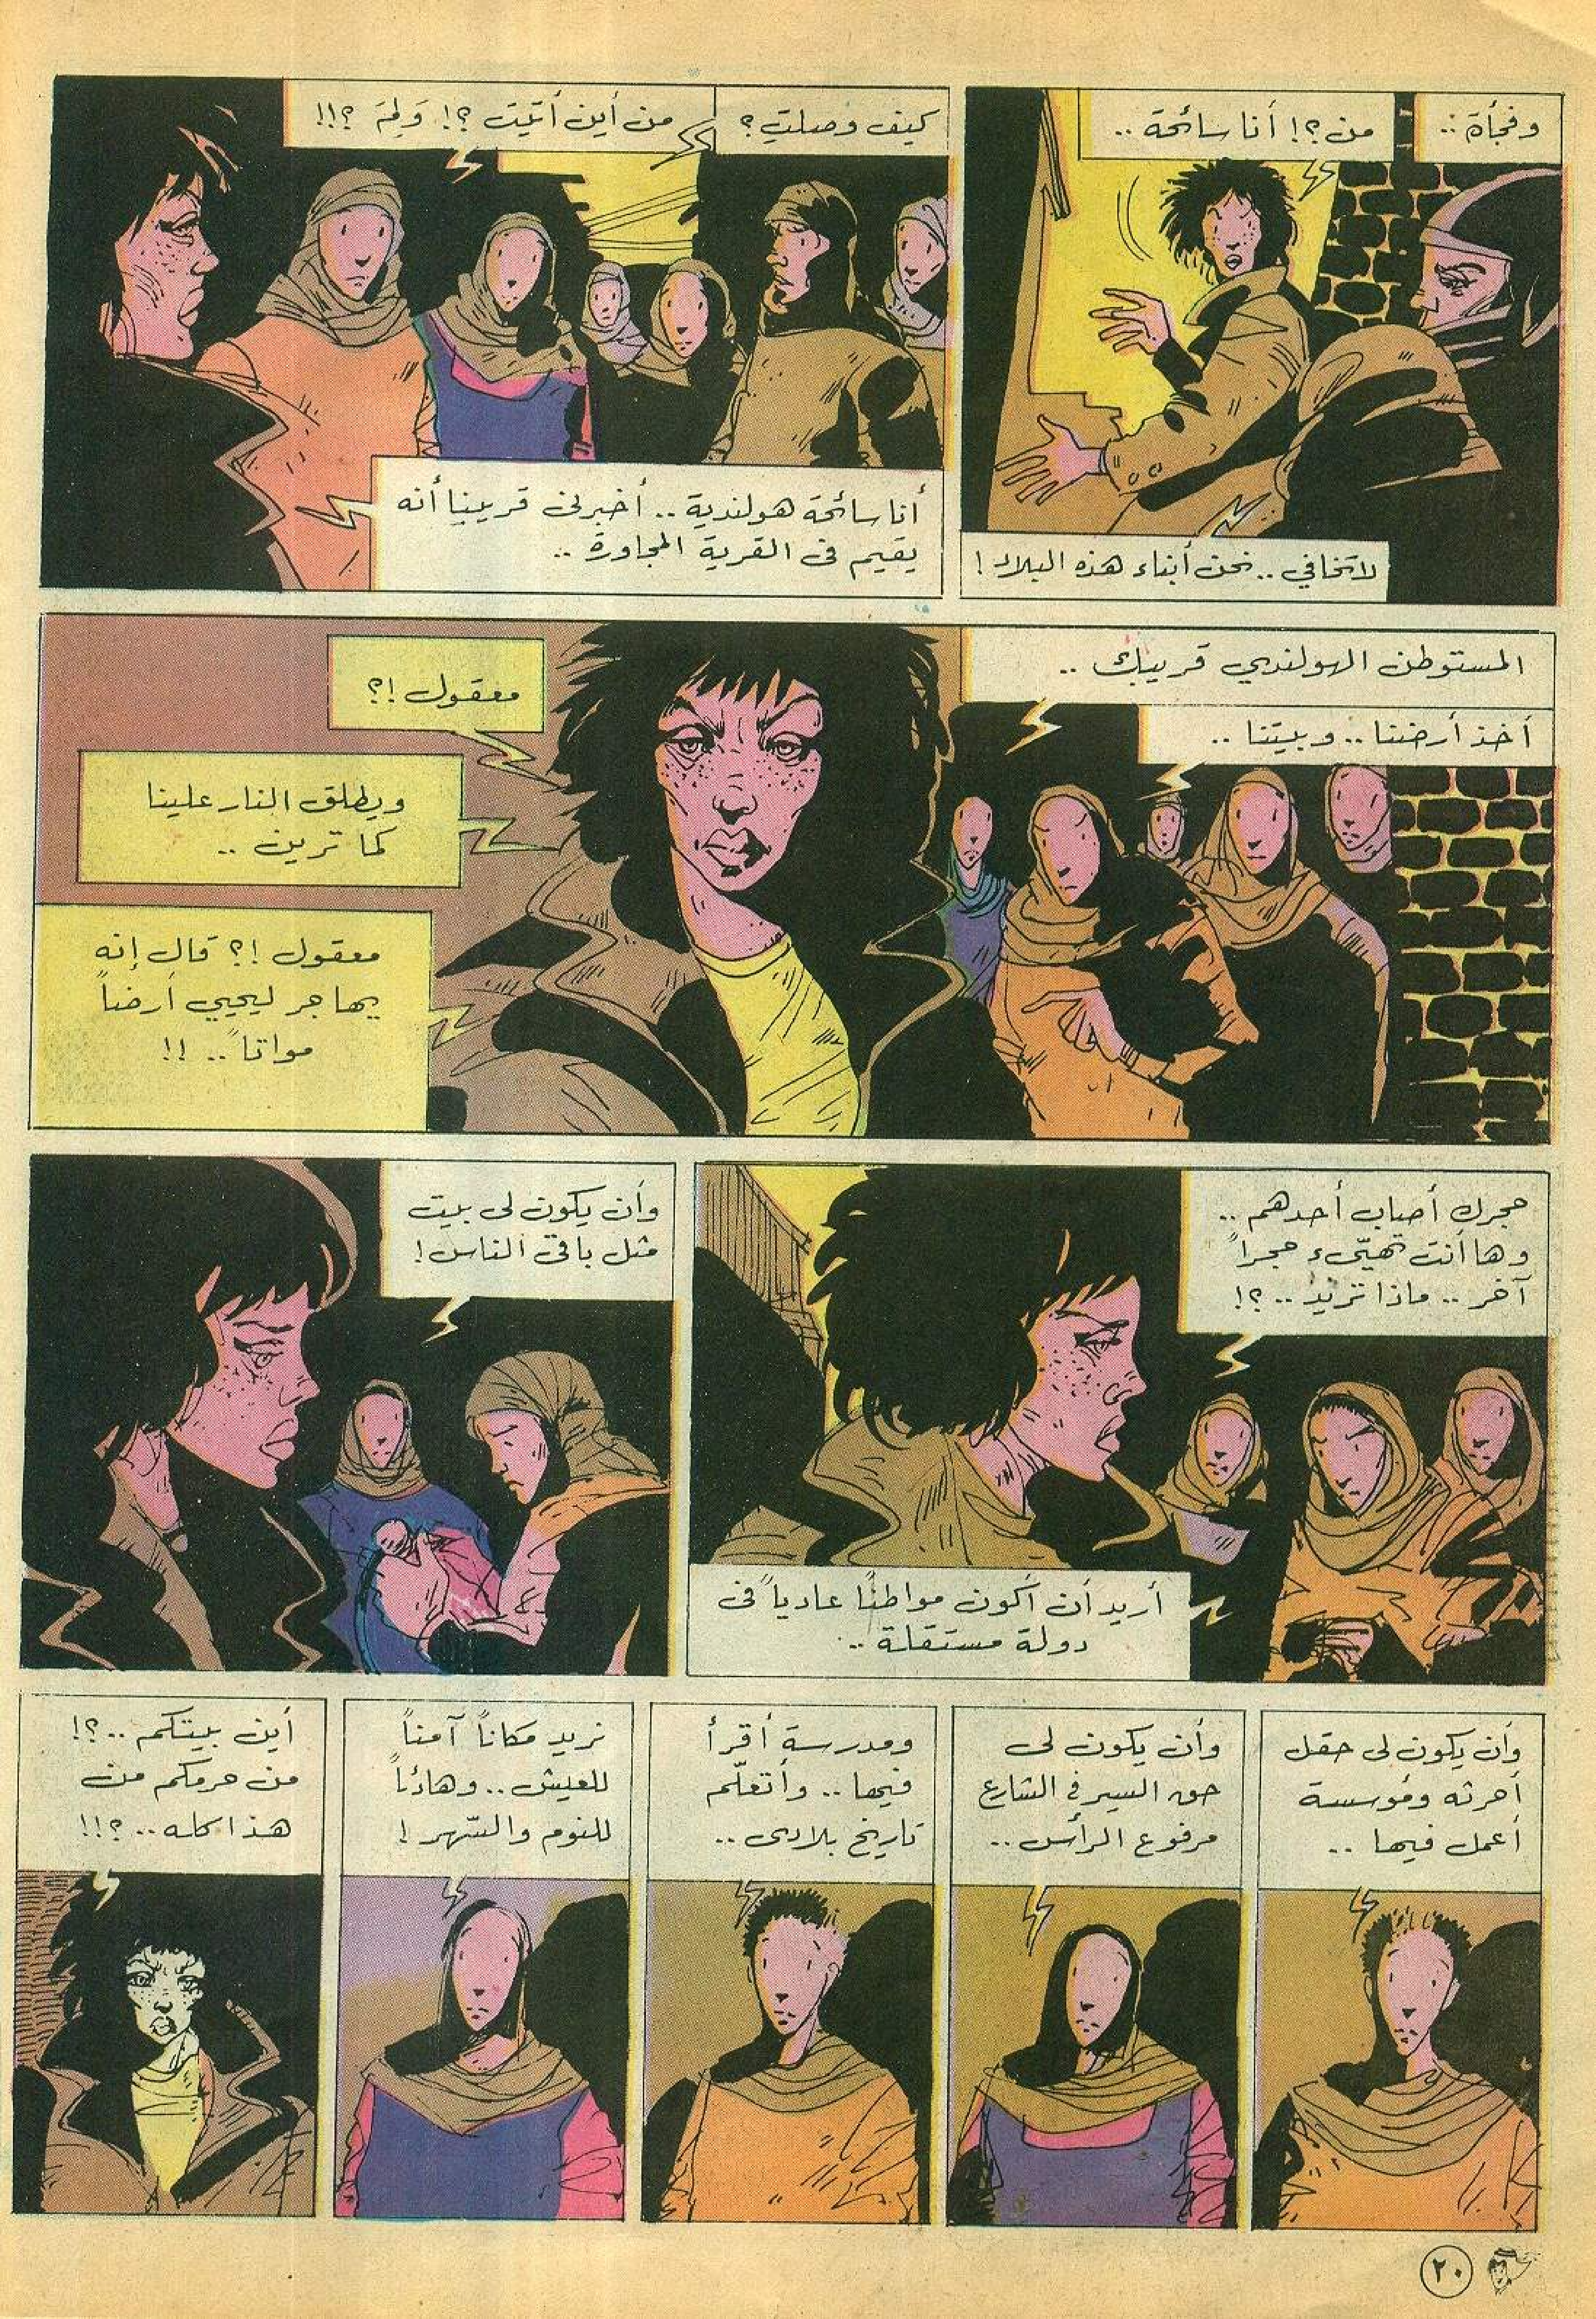 وفجأة ..
من ؟! أنا سائحة ..
لا تخافي .. نحن أبناء هذه البلاد !
كيف وصلتِ ؟
من أين أتيتِ ؟! وَلِمَ ؟!!
أنا سائحة هولندية .. أخبرني قريبنا أنه
يقيم في القرية المجاورة ..
المستوطن الهولندي قريبك ..
أخذ أرضنا .. وبيتنا ..
معقول !؟
ويطلق النار علينا
كما ترين ..
معقول !؟ قال إنه
يهاجر ليحيي أرضاً
مواتاً .. !!
حجرك أصاب أحدهم ..
وها أنت تهيّىء حجراً
آخر .. ماذا تريد .. ؟!
أريد أن أكون مواطنًا عادياً في
دولة مستقلة ..
وأن يكون لي بيت
مثل باقي الناس !
وأن يكون لي حقل
أحرثه ومؤسسة
أعمل فيها ..
وأن يكون لي
حق السير في الشارع
مرفوع الرأس ..
ومدرسة أقرأ
فيها .. وأتعلّم
تاريخ بلادي ..
نريد مكاناً آمناً
للعيش .. وهادئاً
للنوم والسّهر !
أين بيتكم .. ؟!
من حرمكم من
هذا كله .. ؟!!
٢٠